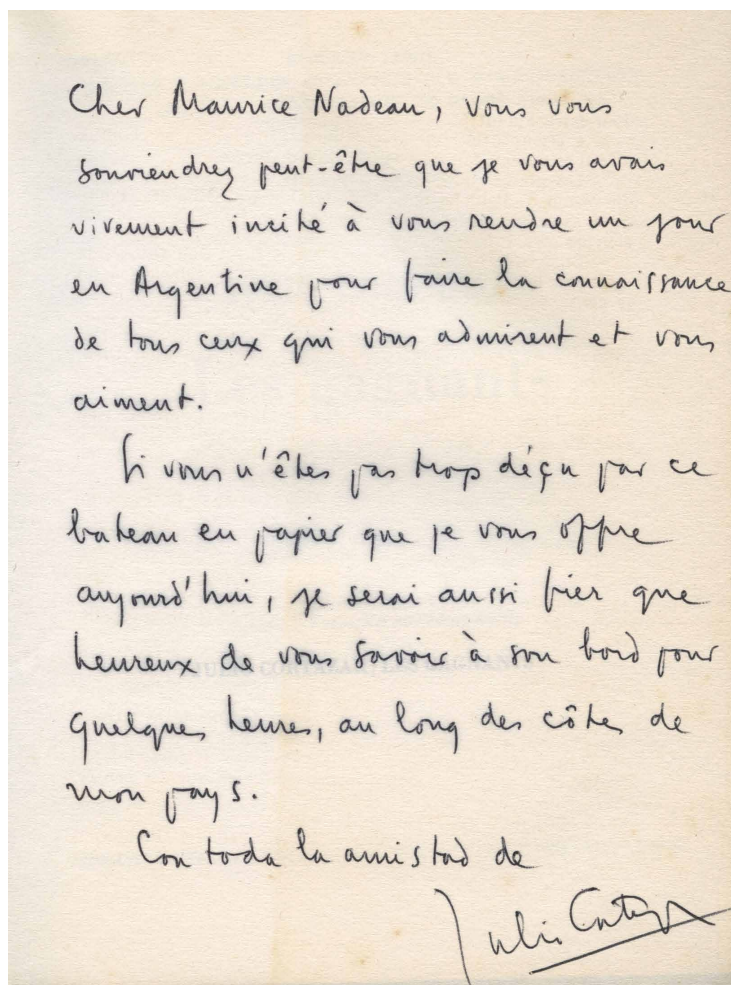 Cher Maurice Nadeau, vous vous
souviendrez peut-être que je vous avais
vivement incité à vous rendre un jour
en Argentine pour faire la connaissance
de tous ceux qui vous admirent et vous
aiment.
Si vous n'êtes pas trop déçu par ce
bateau en papier que je vous offre
aujourd'hui, je serai aussi fier que
heureux de vous savoir à son bord pour
quelques heures, au long des côtes de
mon pays.
Con toda la amistad de
Julio Cortázar